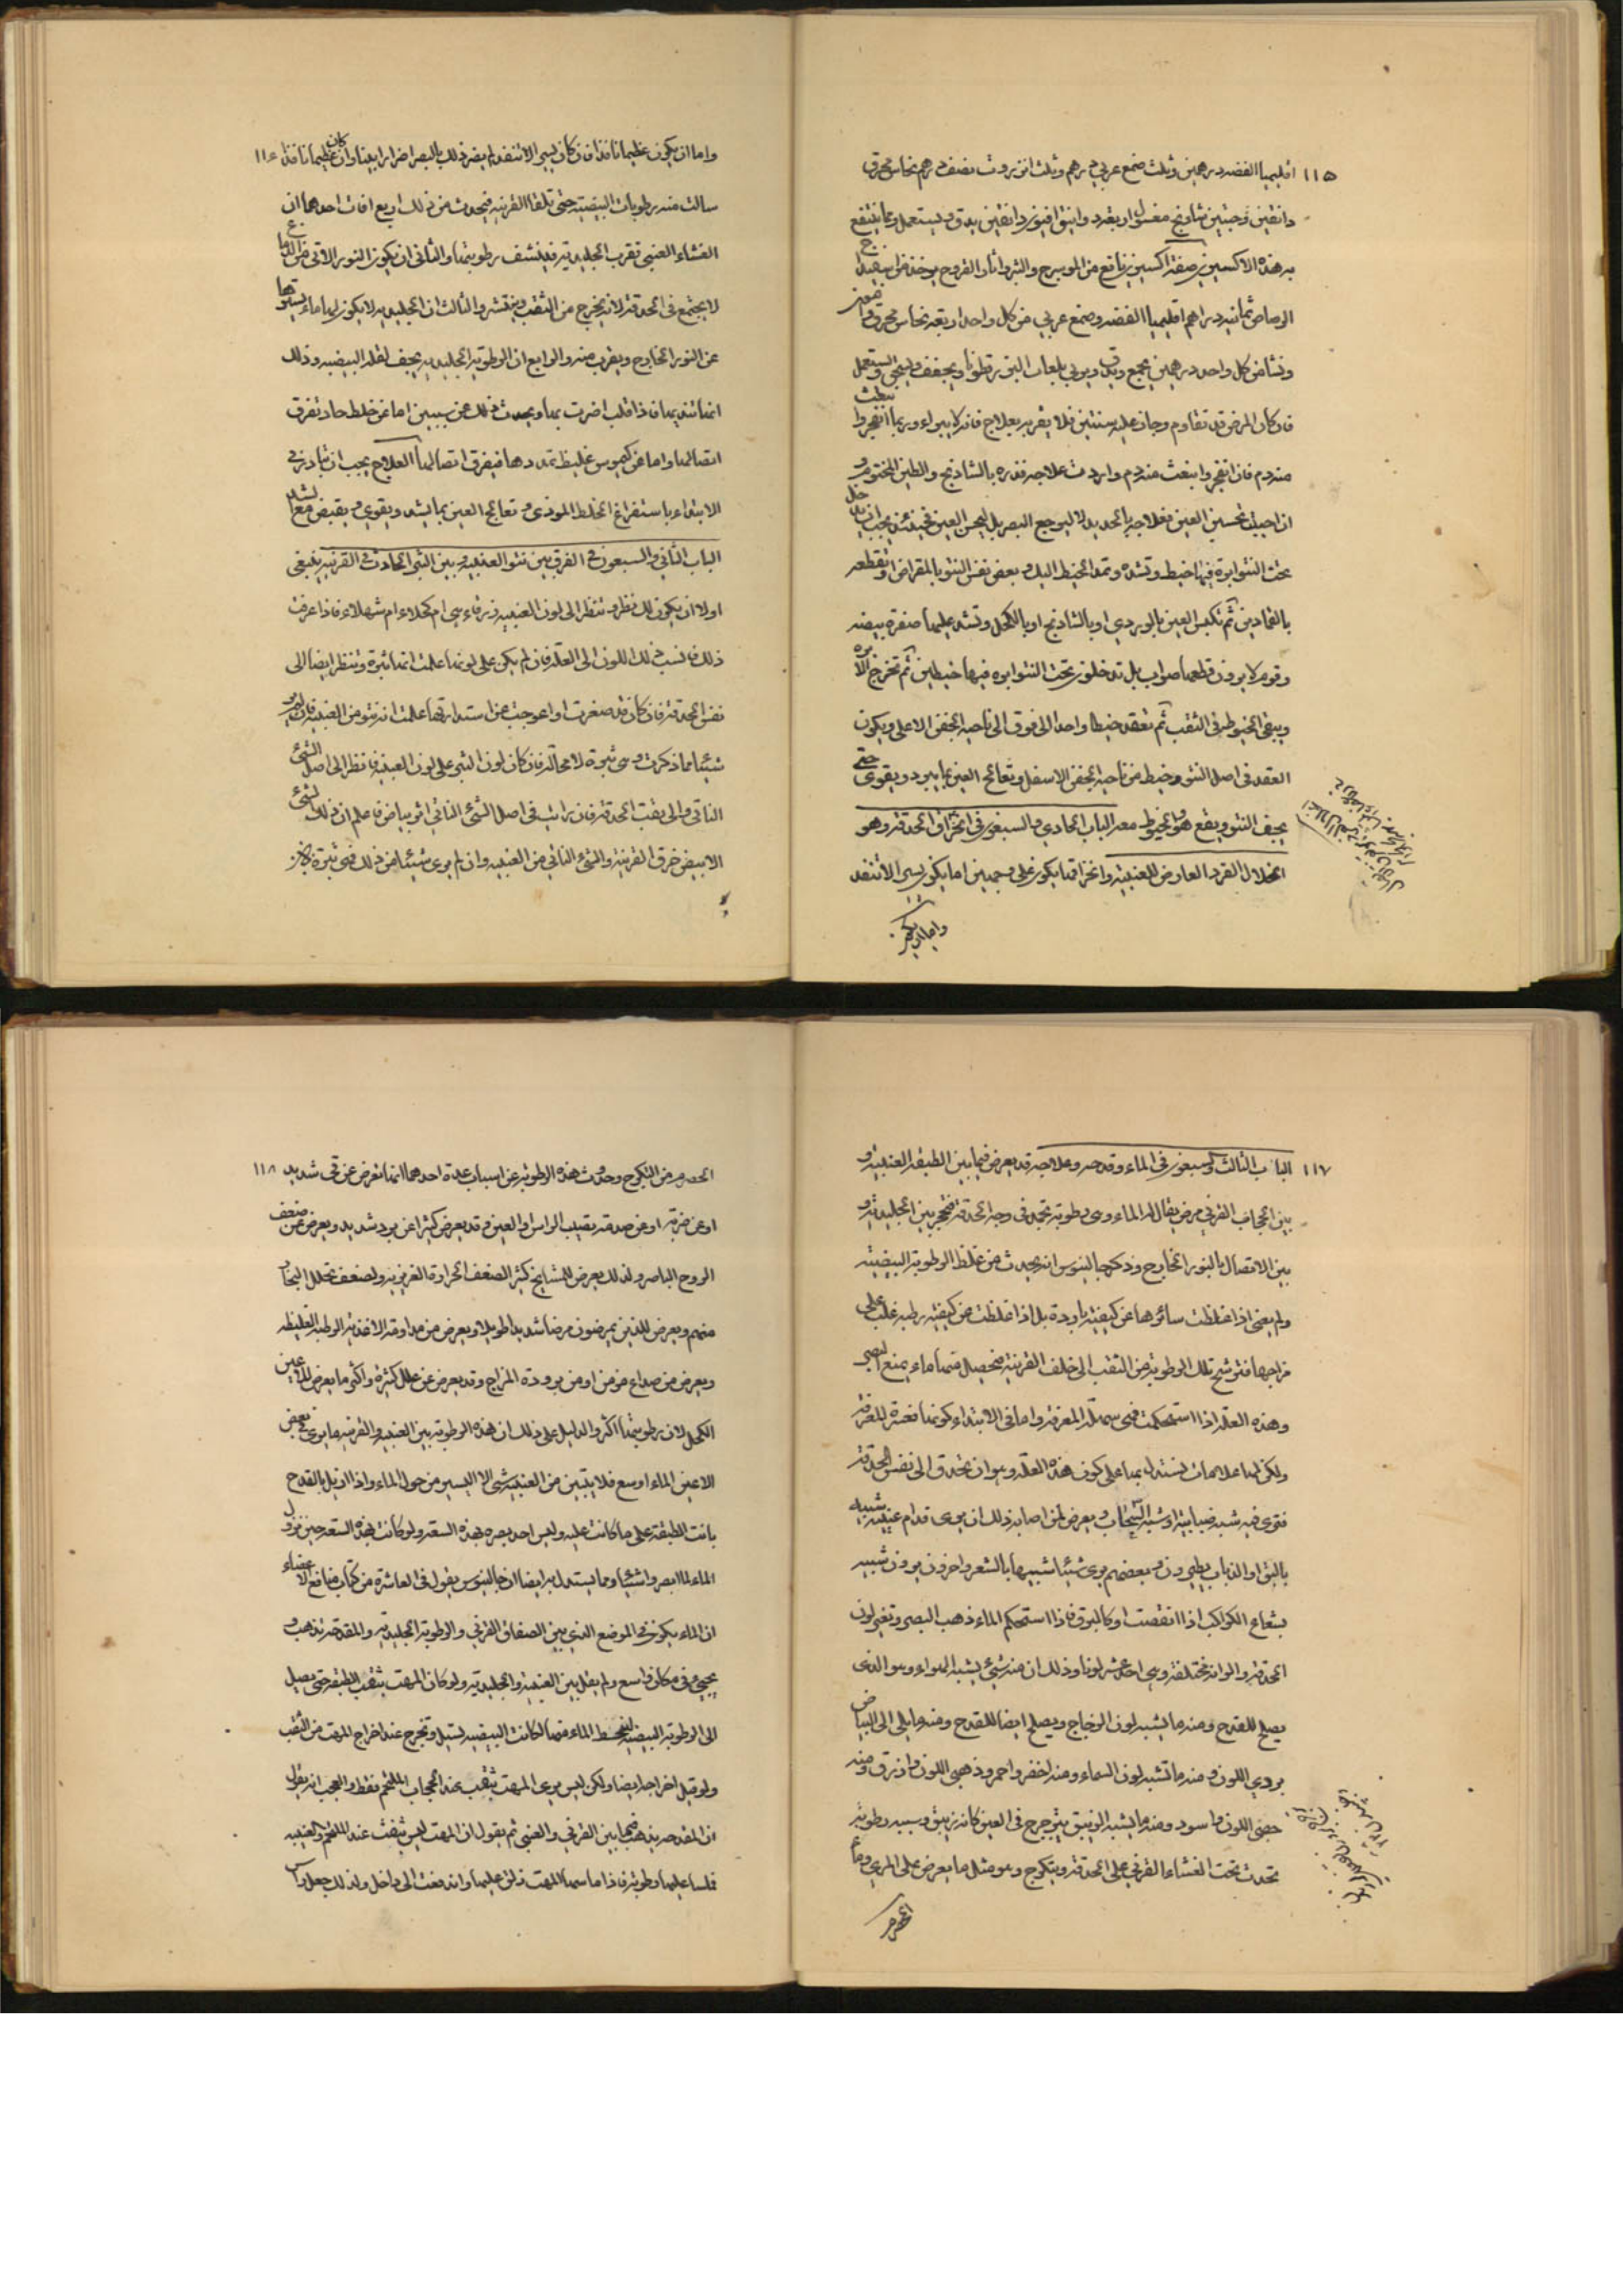 ١١٥ اقليميا الفضه درهمين وثلث صمغ عربي درهم وثلث انزروت نصف درهم نحاس محرق
دانقين وحبتين شاذنج مغسول اربعه دوانيق افيون دانقين يدق ويستعمل ومما ينتفع
به هذه الاكسيرين صفة اكسيرين نافع من المورسرج والبثر واثار القروح يوخذ من اسفيداج
الرصاص ثمانيه دراهم اقليميا الفضه وصمغ عربي من كل واحد اربعه نحاس محرق وافيون
ونشا من كل واحد درهمين يجمع ويدق ويربي بلعاب البزرقطونا ويجفف ويسحق ويستعمل
فان كان المرض قد تقادم وجاز عليه سنتين فلا يقربه بعلاج فانه لا يبراء وربما انفجر وانبعث
منه دم فان انفجر وانبعث منه دم واردت علاجه فذره بالشاذنج والطين المختوم و
ان احببت تحسين العين فعلاجه بالحديد لا ليرجع البصر بل ليحسن العين فحينئذ يجب ان تدخل
تحت النتو ابرة فيها خيط وتشده وتمد الخيط اليك وبعض نفس النتو بالمقراض او تقطعه
بالقمادين ثم تكبس العين بالوردي او بالشاذنج او بالكحل وتشد عليها صفرة بيضه
وقوم لا يرون قطعها صواب بل يدخلون تحت النتو ابره فيها خيطين ثم تخرج الابره
ويبقى الخيوط في الثقب ثم تعقد خيطا واحدا الى فوق الى ناحيه الجفن الاعلى ويكون
العقد في اصل النتو وخيط من ناحيه الجفن الاسفل وتعالج العين بما يبرد ويقوى حتى
يجف النتو ويقع هو والخيوط معه الباب الحادي والسبعون في انخراق الحدقة وهو
انحلال الفرد العارض للعنبيه وانخراقها يكون على وجهين اما يكون يسيرا لا تنفد
واما ان يكون
واما ان يكون عظيما نافذا فان كان يسيرا لا تنفد لم يضر ذلك بالبصر اضرارا بينا وان كان عظيما نافذا ١١٦
سالت منه رطوبات البيضيه حتى تلقا القرنيه فيحدث من ذلك اربع افات احدهما ان
الغشاء العنبي تقرب الجليديه فينشف رطوبتها والثاني ان يكون النور الاتي من الدماغ
لا يجتمع في الحدقة لانه يخرج من الثقب وينتشر والثالث ان الجليديه لا يكون لها ماء يسترها
عن النور الخارج ويقرب منه والرابع ان الرطوبة الجليديه يجف لقلة البيضيه وذلك
انها تنديها فاذا قلت اضرت بها ويحدث ذلك عن سببين اما عن خلط حاد تفرق
اتصالها واما عن كيموس غليظ تمددها فيفرق اتصالها العلاج يجب ان تبادر في
الابتداء باستفراغ الخلط الموذي و تعالج العين بما يشد ويقوي و يقبض مع الشد
الباب الثاني والسبعون في الفرق بين نتو العنبيه وبين البثر الحادث في القرنيه ينبغي
اولا ان يكون لك نظر وتنظر الى لون العنبيه زرقاء هي ام كحلاء ام شهلاء فاذا عرفت
ذلك فانسب ذلك اللون الى العلة فان لم يكن على لونها علمت انها بثرة وتنظر ايضا الى
نفس الحدقة فان كان قد صغرت او اعوجت عن استدارتها علمت انه نتو من العنبيه فان لم تر
شيئا مما ذكرت وهي بثرة لا محالة فان كان لون البثر على لون العنبيه فانظر الى اصل الشئ
الناتي والى ثقب الحدقة فان رايت في اصل الشئ الناتي اثر بياض فاعلم ان ذلك الشئ
الابيض خرق القرنية والشئ الناتي من العنبيه وان لم يرى شيئا من ذلك فهي بثرة
١١٧ الباب الثالث والسبعون في الماء وقدحه وعلاجه قد يعرض فيما بين الطبقه العنبيه و
بين الحجاب القرني مرض يقال له الماء وهي رطوبة تجمد في وجه الحدقة فتحجر بين الجليدية و
بين الاتصال بالنور الخارج وذكر جالينوس انه يحدث من غلظ الرطوبة البيضيه
ولم يعني اذا غلظت سائرها عن كيفيه باردة بل اذا غلظت عن كيفيه رطبه غلب على
مزاجها فترشح تلك الرطوبة من الثقب الى خلف القرنيه فيحصل منها ماء يمنع البصر
وهذه العلة اذا استحكمت فهي سهلة المعرفة واما في الابتداء كونها فعسرة المعرفة
ولكن لها علامات تستدل بها على كون هذه العله وهو ان تحدق الى نفس الحدقة
فترى فيه شبه ضبابية او شبه السحاب و يعرض لمن اصابه ذلك ان يرى قدام عينيه شبيه
بالبق او الذباب يطيرون و بعضهم يرى شيئا شبيها بالشعر واخرون يرون شبيه
بشعاع الكواكب اذا انقضت او كالبرق فاذا استحكم الماء ذهب البصر وتغير لون
الحدقه والوانه مختلفه وهي احد عشر لونا وذلك ان منه شئ يشبه الهواء وهو الذي
يصلح للقدح ومنه ما يشبه لون الزجاج ويصلح ايضا للقدح ومنه ما يلي الى البياض
بردي اللون و منه ما تشبه لون السماء ومنه اخضر واحمر وذهبي اللون وازرق ومنه
جصي اللون واسود ومنه ما يشبه الزيبق يترجرج في العين كانه زيبق وسببه رطوبه
تحدث تحت الغشاء القرني على الحدقه ويتكرج وهو مثل ما يعرض على المري وماء
الحصرم
الحصرم من التكرج وحدوث هذه الرطوبة عن اسباب عدة احدهما انها تعرض عن قي شديد ١١٨
او عن ضربة او عن صدمة تصيب الراس او العين وقد يعرض كثيرا عن برد شديد ويعرض عن ضعف
الروح الباصر ولذلك يعرض للمشايخ كثيرا لضعف الحرارة الغريزيه ولضعف تحلل البخار
منهم ويعرض للذين يمرضون مرضا شديدا طويلا ويعرض من مداومة الاغذيه الرطبه الغليظه
ويعرض من صداع مزمن او من برودة المزاج وقد يعرض عن علل كثيرة واكثر ما يعرض للاعين
الكحل لان رطوبتها اكثر والدليل على ذلك ان هذه الرطوبه بين العنبيه والقرنيه ما يرى في بعض
الاعين الماء اوسع فلا يتبين من العنبيه شئ الا اليسير من حول الماء واذا ازيل بالقدح
بانت الطبقة على ما كانت عليه وليس احد يصره بهذه السعة ولو كانت بهذه السعة حين نزول
الماء لما ابصروا شيئا ومما يستدل به ايضا ان جالينوس يقول في العاشرة من كتاب منافع الاعضاء
ان الماء يكون في الموضع الذي بين الصفاق القرني والرطوبة الجليديه والمقدحه تذهب و
يجئ في مكان واسع ولم يقل بين العنبيه والجليديه ولو كان المهت يثقب الطبقة حتى يصل
الى الرطوبة البيضيه ليحط الماء منها لكانت البيضيه تسيل وتخرج عند اخراج المهت من الثقب
ولو قيل اخراجه ايضا ولكن ليس يرى المهت يثقب عند الحجاب الملتحم فقط والعجب انه يقول
ان المقدحه يذهب فيما بين القرني والعنبي ثم يقول ان المهت ليس يثقب عند الملتحم والعنبيه
فلسا عليها رطوبة فاذا ماسها المهت زلق عليها واندفعت الى داخل ولذلك جعل راس